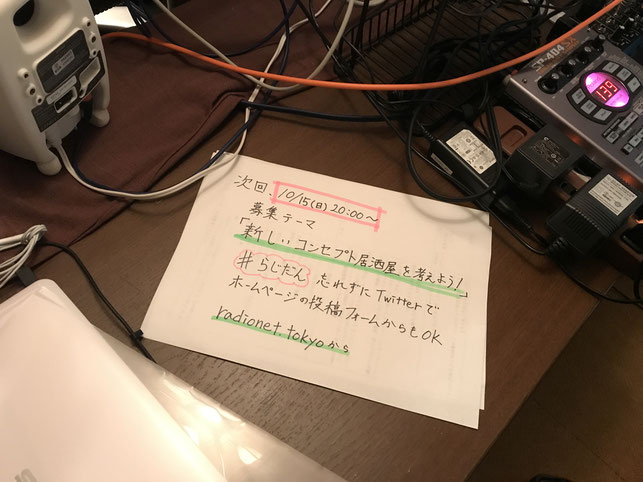 次回、10/15(日)20:00〜
募集テーマ
「新しいコンセプト居酒屋を考えよう!」
#らじだん 忘れずにTwitterで
ホームページの投稿フォームからもOK
radionet.tokyoから
SP-404
139